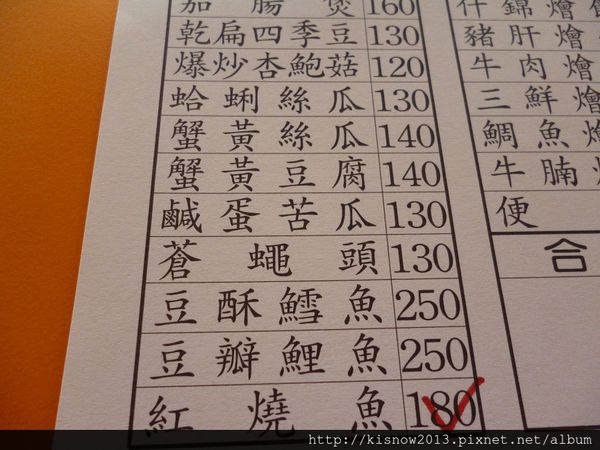 茄腸煲 160
乾扁四季豆 130
爆炒杏鮑菇 120
蛤蜊絲瓜 130
蟹黃絲瓜 140
蟹黃豆腐 140
鹹蛋苦瓜 130
蒼蠅頭 130
豆酥鱈魚 250
豆瓣鯉魚 250
紅燒魚 180
什錦燴
豬肝燴
牛肉燴
三鮮燴
鯛魚燴
牛腩
便
合
http://kisnow2013.pixnet.net/album